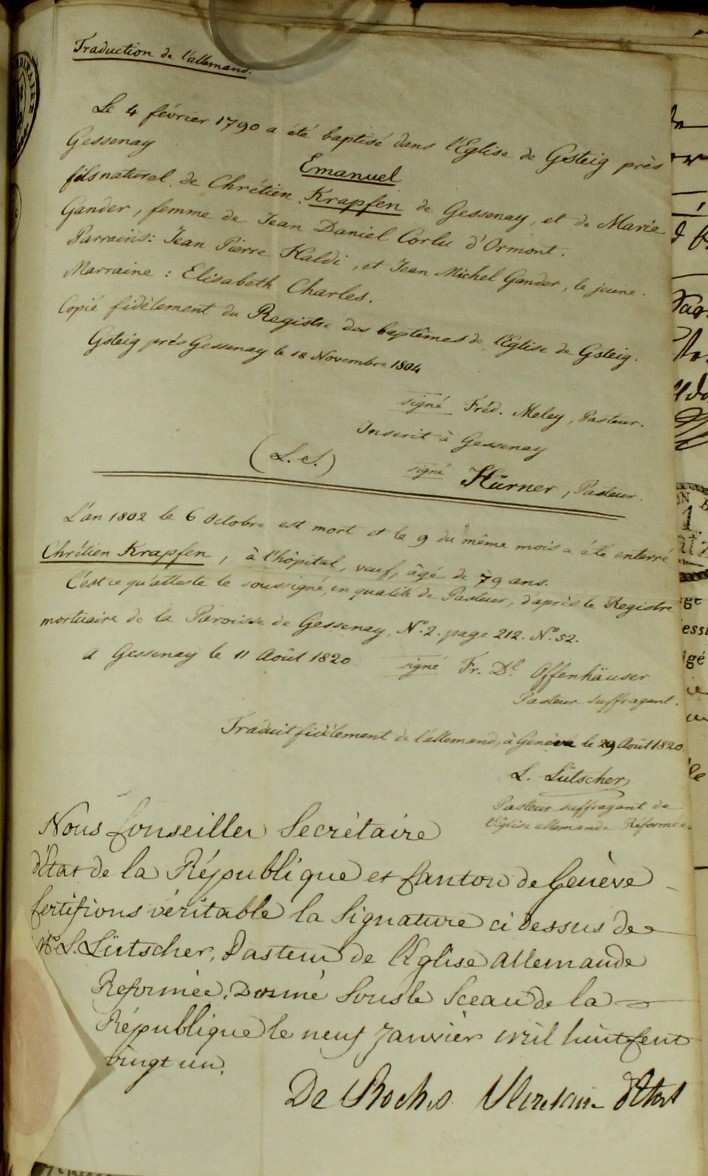 Traduction de l'allemand.
Le 4 février 1790 a été baptisé dans l'Eglise de Gsteig près
Gessenay
Emanuel
fils naturel de Chrétien Krapfen de Gessenay, et de Marie
Gander, femme de Jean Daniel Corlu d'Ormont.
Parrains: Jean Pierre Kaldi, et Jean Michel Gander, le jeune.
Marraine: Elisabeth Charles.
Copié fidèlement du Registre des baptêmes de l'Eglise de Gsteig.
Gsteig près Gessenay le 18 Novembre 1804
signé Fréd. Meley, Pasteur.
Inscrit à Gessenay
(L.S.) signé Hürner, Pasteur.
L'an 1802 le 6 Octobre est mort et le 9 du même mois a été enterré
Chrétien Krapfen, à l'hôpital, veuf, âgé de 79 ans.
C'est ce qu'atteste le soussigné, en qualité de Pasteur, d'après le Registre
mortuaire de la Paroisse de Gessenay, N.º 2. page 212. Nº. 52.
à Gessenay le 11 Août 1820 signé Fr. Dl. Offenhäuser
Pasteur suffragant.
Traduit fidèlement de l'allemand, à Genève le 29 Août 1820
L. Lütscher,
Pasteur suffragant de
l'Eglise allemande Réformée.
Nous Conseiller Secrétaire
d'Etat de la République et Canton de Genève
Certifions véritable la Signature ci dessus de
Mr. L. Lütscher, Pasteur de l'Eglise allemande
Reformée. Donné sous le Sceau de la
République le neuf Janvier mil huit cent
vingt un.
De Roches Secrétaire d'Etat